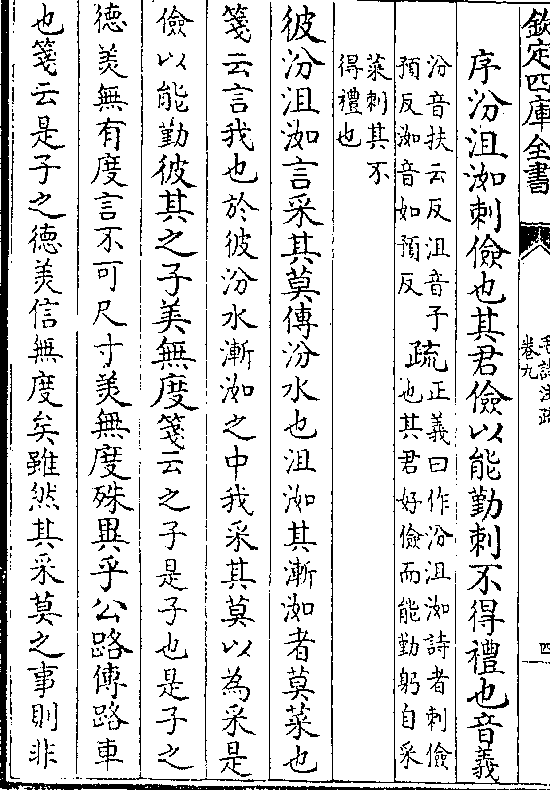 欽定四庫全書
毛詩注疏
卷九
四
序汾沮洳刺儉也其君儉以能勤刺不得禮也音義
汾音扶云反沮音子
預反洳音如預反
疏
正義曰作汾沮洳詩者刺儉
也其君好儉而能勤躬自采
菜刺其不
得禮也
彼汾沮洳言采其莫傳汾水也沮洳其漸洳者莫菜也
箋云言我也於彼汾水漸洳之中我采其莫以為采是
儉以能勤彼其之子美無度箋云之子是子也是子之
德美無有度言不可尺寸美無度殊異乎公路傳路車
也箋云是子之德美信無度矣雖然其采莫之事則非